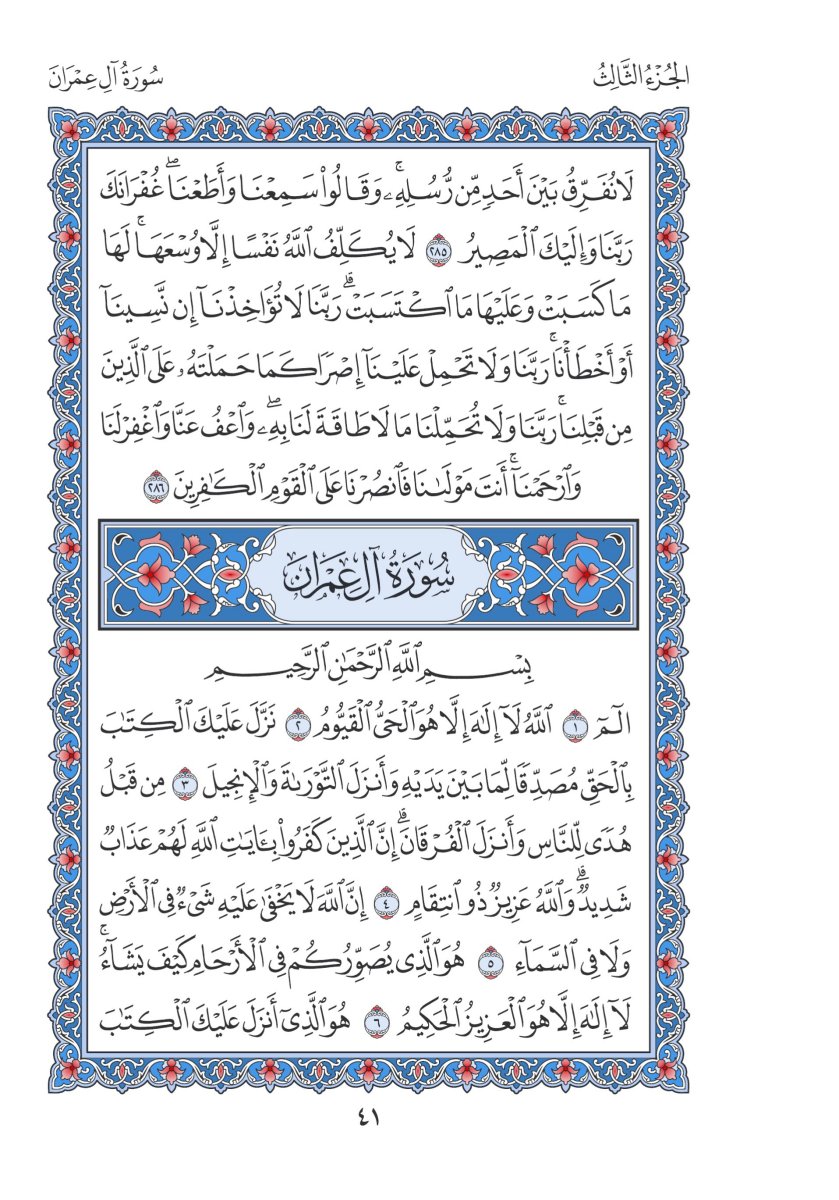 الجُزْءُ الثَّالِثُ
سُورَةُ آلِ عِمْرَانَ
لَا نُفَرِّقُ بَيْنَ أَحَدٍ مِّن رُّسُلِهِۦۚ وَقَالُوا۟ سَمِعْنَا وَأَطَعْنَاۖ غُفْرَانَكَ
رَبَّنَا وَإِلَيْكَ ٱلْمَصِيرُ ٢٨٥ لَا يُكَلِّفُ ٱللَّهُ نَفْسًا إِلَّا وُسْعَهَاۚ لَهَا
مَا كَسَبَتْ وَعَلَيْهَا مَا ٱكْتَسَبَتْۗ رَبَّنَا لَا تُؤَاخِذْنَآ إِن نَّسِينَآ
أَوْ أَخْطَأْنَاۚ رَبَّنَا وَلَا تَحْمِلْ عَلَيْنَآ إِصْرًا كَمَا حَمَلْتَهُۥ عَلَى ٱلَّذِينَ
مِن قَبْلِنَاۚ رَبَّنَا وَلَا تُحَمِّلْنَا مَا لَا طَاقَةَ لَنَا بِهِۦۖ وَٱعْفُ عَنَّا وَٱغْفِرْ لَنَا
وَٱرْحَمْنَآۚ أَنتَ مَوْلَىٰنَا فَٱنصُرْنَا عَلَى ٱلْقَوْمِ ٱلْكَٰفِرِينَ ٢٨٦
سُورَةُ آلِ عِمْرَانَ
بِسْمِ ٱللَّهِ ٱلرَّحْمَٰنِ ٱلرَّحِيمِ
الٓمٓ ١ ٱللَّهُ لَآ إِلَٰهَ إِلَّا هُوَ ٱلْحَىُّ ٱلْقَيُّومُ ٢ نَزَّلَ عَلَيْكَ ٱلْكِتَٰبَ
بِٱلْحَقِّ مُصَدِّقًا لِّمَا بَيْنَ يَدَيْهِ وَأَنزَلَ ٱلتَّوْرَىٰةَ وَٱلْإِنجِيلَ ٣ مِن قَبْلُ
هُدًى لِّلنَّاسِ وَأَنزَلَ ٱلْفُرْقَانَۗ إِنَّ ٱلَّذِينَ كَفَرُوا۟ بِـَٔايَٰتِ ٱللَّهِ لَهُمْ عَذَابٌ
شَدِيدٌۗ وَٱللَّهُ عَزِيزٌ ذُو ٱنتِقَامٍ ٤ إِنَّ ٱللَّهَ لَا يَخْفَىٰ عَلَيْهِ شَىْءٌ فِى ٱلْأَرْضِ
وَلَا فِى ٱلسَّمَآءِ ٥ هُوَ ٱلَّذِى يُصَوِّرُكُمْ فِى ٱلْأَرْحَامِ كَيْفَ يَشَآءُۚ
لَآ إِلَٰهَ إِلَّا هُوَ ٱلْعَزِيزُ ٱلْحَكِيمُ ٦ هُوَ ٱلَّذِىٓ أَنزَلَ عَلَيْكَ ٱلْكِتَٰبَ
٤١